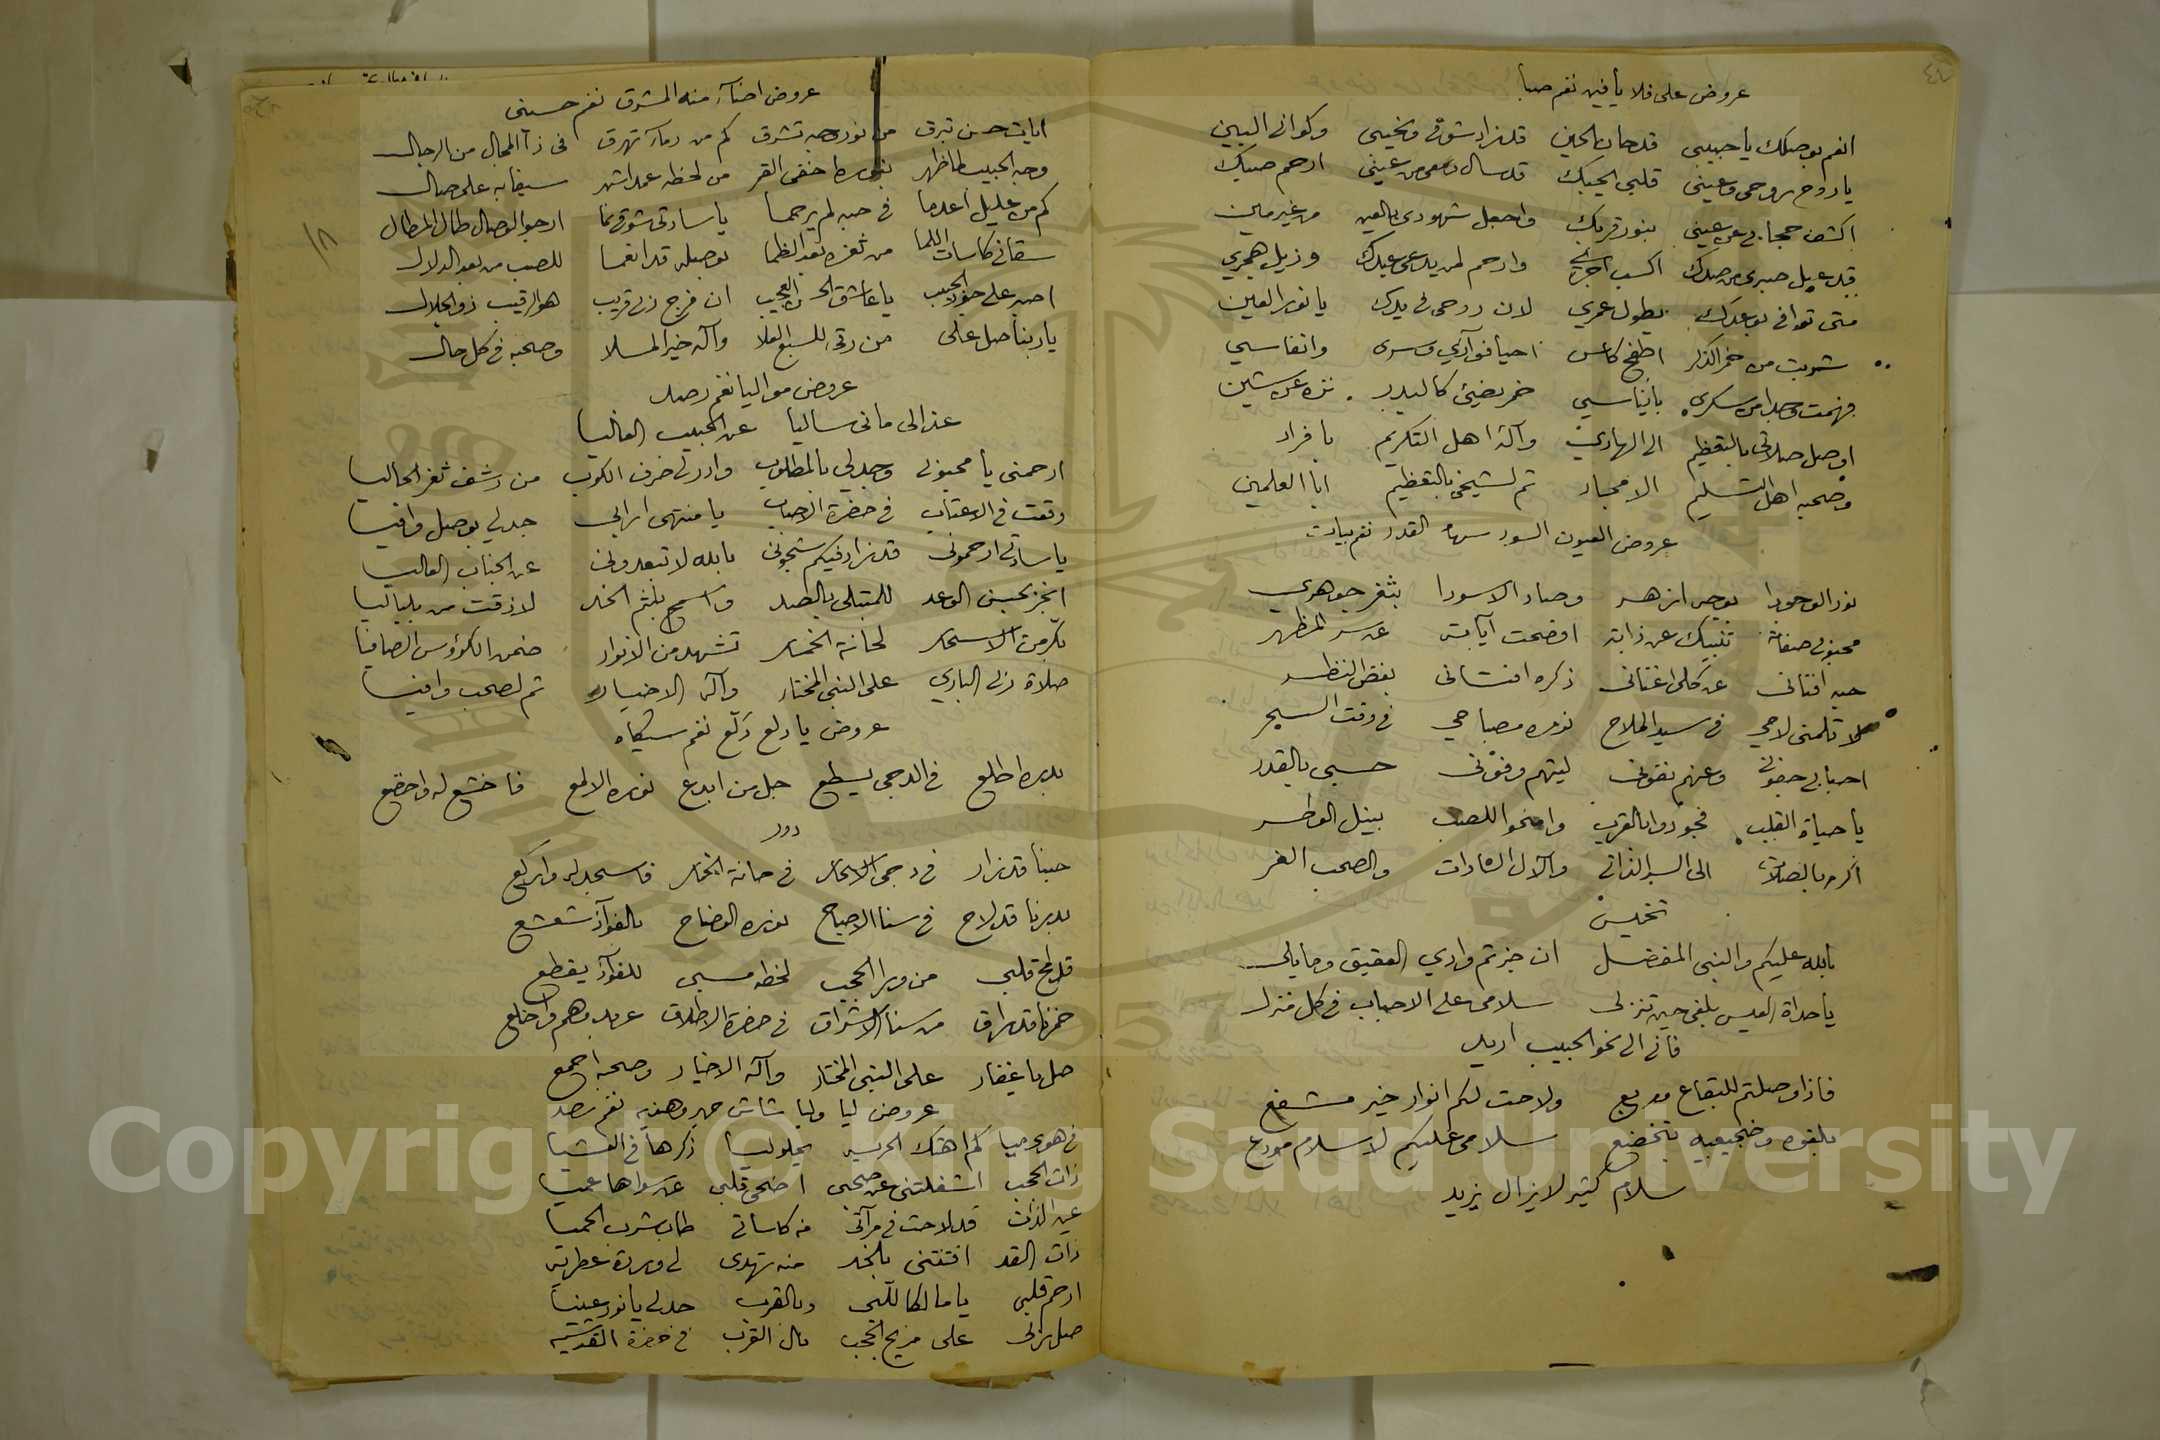 عروض على فلا يا فين نغم صبا
انعم بوصلك يا حبيبي قد حان الحين قد زاد شوقي ونحيبي وكواني البين
يا روح روحي وعيني قلبي يحبك قد سال دمعي من عيني ارحم صبك
اكشف حجابي عن عيني بنور قربك واجعل شهودي بالعين من غير مين
صبري من صدك اكسب اجري وارحم لمن يدعي عبدك وزيل هجري
متى توافي بوعدك يطول عمري لان روحي في يدك يا نور العين
شربت من خمر الذكر اطفح كاس احيا فؤادي وسري وانفاسي
فهمت وجدا من سكري بايناسي خمر يضيئ كالبدر نزه عن شين
اوصل صلاتي بالتعظيم الى الهادي وآله اهل التكريم يا فراد
وصحبه اهل التسليم الامجاد ثم لشيخي بالتعظيم ابا العلمين
عروض العيون السود سهام القدر نغم بيات
نور الوجود بوجه ازهر وصاد الاسودا بثغر جوهري
محبوبي صفاته تنبيك عن ذاته افصحت آياته عن سر المظهر
حبه افتاني عن كلي اغناني ذكره انشاني بغض النظر
لا تلمني لاحي في سيد الملاح نوره مصباحي في وقت السحر
احبابي جفوني وعنهم نفوني ليتهم وفوني حسبي بالقدر
يا حياة القلب فجودوا بالقرب وامنحوا للصب بنيل الوطر
اكرم بالصلات الى السر الذاتي والآل السادات والصحب الغر
تخميس
بالله عليكم والنبي المفضل ان جزتم وادي العقيق وما يلي
يا حداة العيس بلغي حين تنزلي سلامي على الاحباب في كل منزل
فاني الى نحو الحبيب اريد
فاذا وصلتم للبقاع مربع ولاحت لكم انوار خير مشفع
بلغوه وضجيعيه بتخضع سلامي عليكم لا سلام مودع
سلام كثير لا يزال يزيد
عروض اضاء منه المشرق نغم حسيني
ايات حسن تبرق من نور وجه تشرق كم من دماء تهرق في ذا المجال من الرجال
وجه الحبيب لما ظهر بنوره اختفى القمر من لحظه عمدا شهر سيفا به علي صال
كم من عليل اعدما في حبه لم يرحما يا سادتي شوقي نما ارجوا الوصال طال المطال
سقاني كاسات اللما من ثغره بعد الظما بوصله قد انعما للصب من بعد الدلال
اصبر على جور الحبيب يا عاشق الحسن العجيب ان فرج ربي قريب هو الرقيب ذو الجلال
يا ربنا صل على من رقى للسبع العلا وآله خير الملا وصحبه في كل حال
عروض مواليا نغم رصد
عذالي ماني ساليا عن الحبيب الغاليا
ارحمني يا محبوبي وجد لي بالمطلوب وادر لي خمر الكوب من رشف ثغر الحاليا
وقفت في الاعتاب في حضرة الاحباب يا منتهى ارابي جد لي بوصل وافيا
يا ساداتي ارحموني قد زاد فيكم شجوني بالله لا تبعدوني عن الجناب العاليا
انجز بحسن الوعد للمبتلي بالصد واسمح بلثم الخد لا زقت من بلباليا
بكر من الاسحار لحانة الخمار تشهد من الانوار ضمن الكؤوس الصافيا
صلاة ربي الباري على النبي المختار وآله الاخيار ثم لصحب وافيا
عروض يا دلع دلع نغم سيكاه
بدره اطلع في الدجى يسطع جل من ابدع نوره الالمع فاخشع له واخضع
دور
حبنا قد زار في دجى الاسحار في حانة الخمار فاسجد له واركع
بدرنا قد لاح في سنا الاصباح نوره الوضاح بالفؤاد شعشع
قد لمح قلبي من ورا الحجب لحظه مسبي للفؤاد يقطع
خمرنا قد راق من سنا الاشراق في حضرة الاطلاق عربد وهم واخلع
صل يا غفار على النبي المختار وآله الاخيار وصحبه اجمع
عروض ليا وليا شاش حبر وهنديه نغم رصد
في هوى ميا كم اهتك الحريه يحلو ليا ذكرها في العشيا
ذات الحجب اشغلتني عن صحبي اضحى قلبي عن سواها عميا
عين الذات قد لاحت في مرآتي من كاساتي طاب شرب الحميا
ذات القد افتنتني بالخد منه تهدى لي وردة عطريه
ارحم قلبي يا مالكا لبي وبالقرب جد لي يا نور عينيا
صل ربي على مزيح الحجب نال القرب في حضرة القدسيه